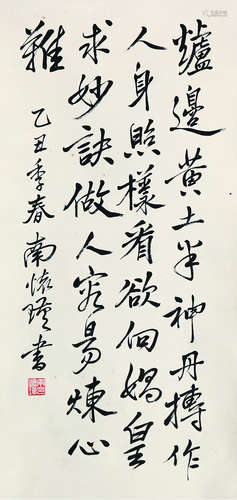 爐邊黃土半神丹摶作
人身照樣看欲向媧皇
求妙訣做人容易煉心
難
乙丑季春南懷瑾書